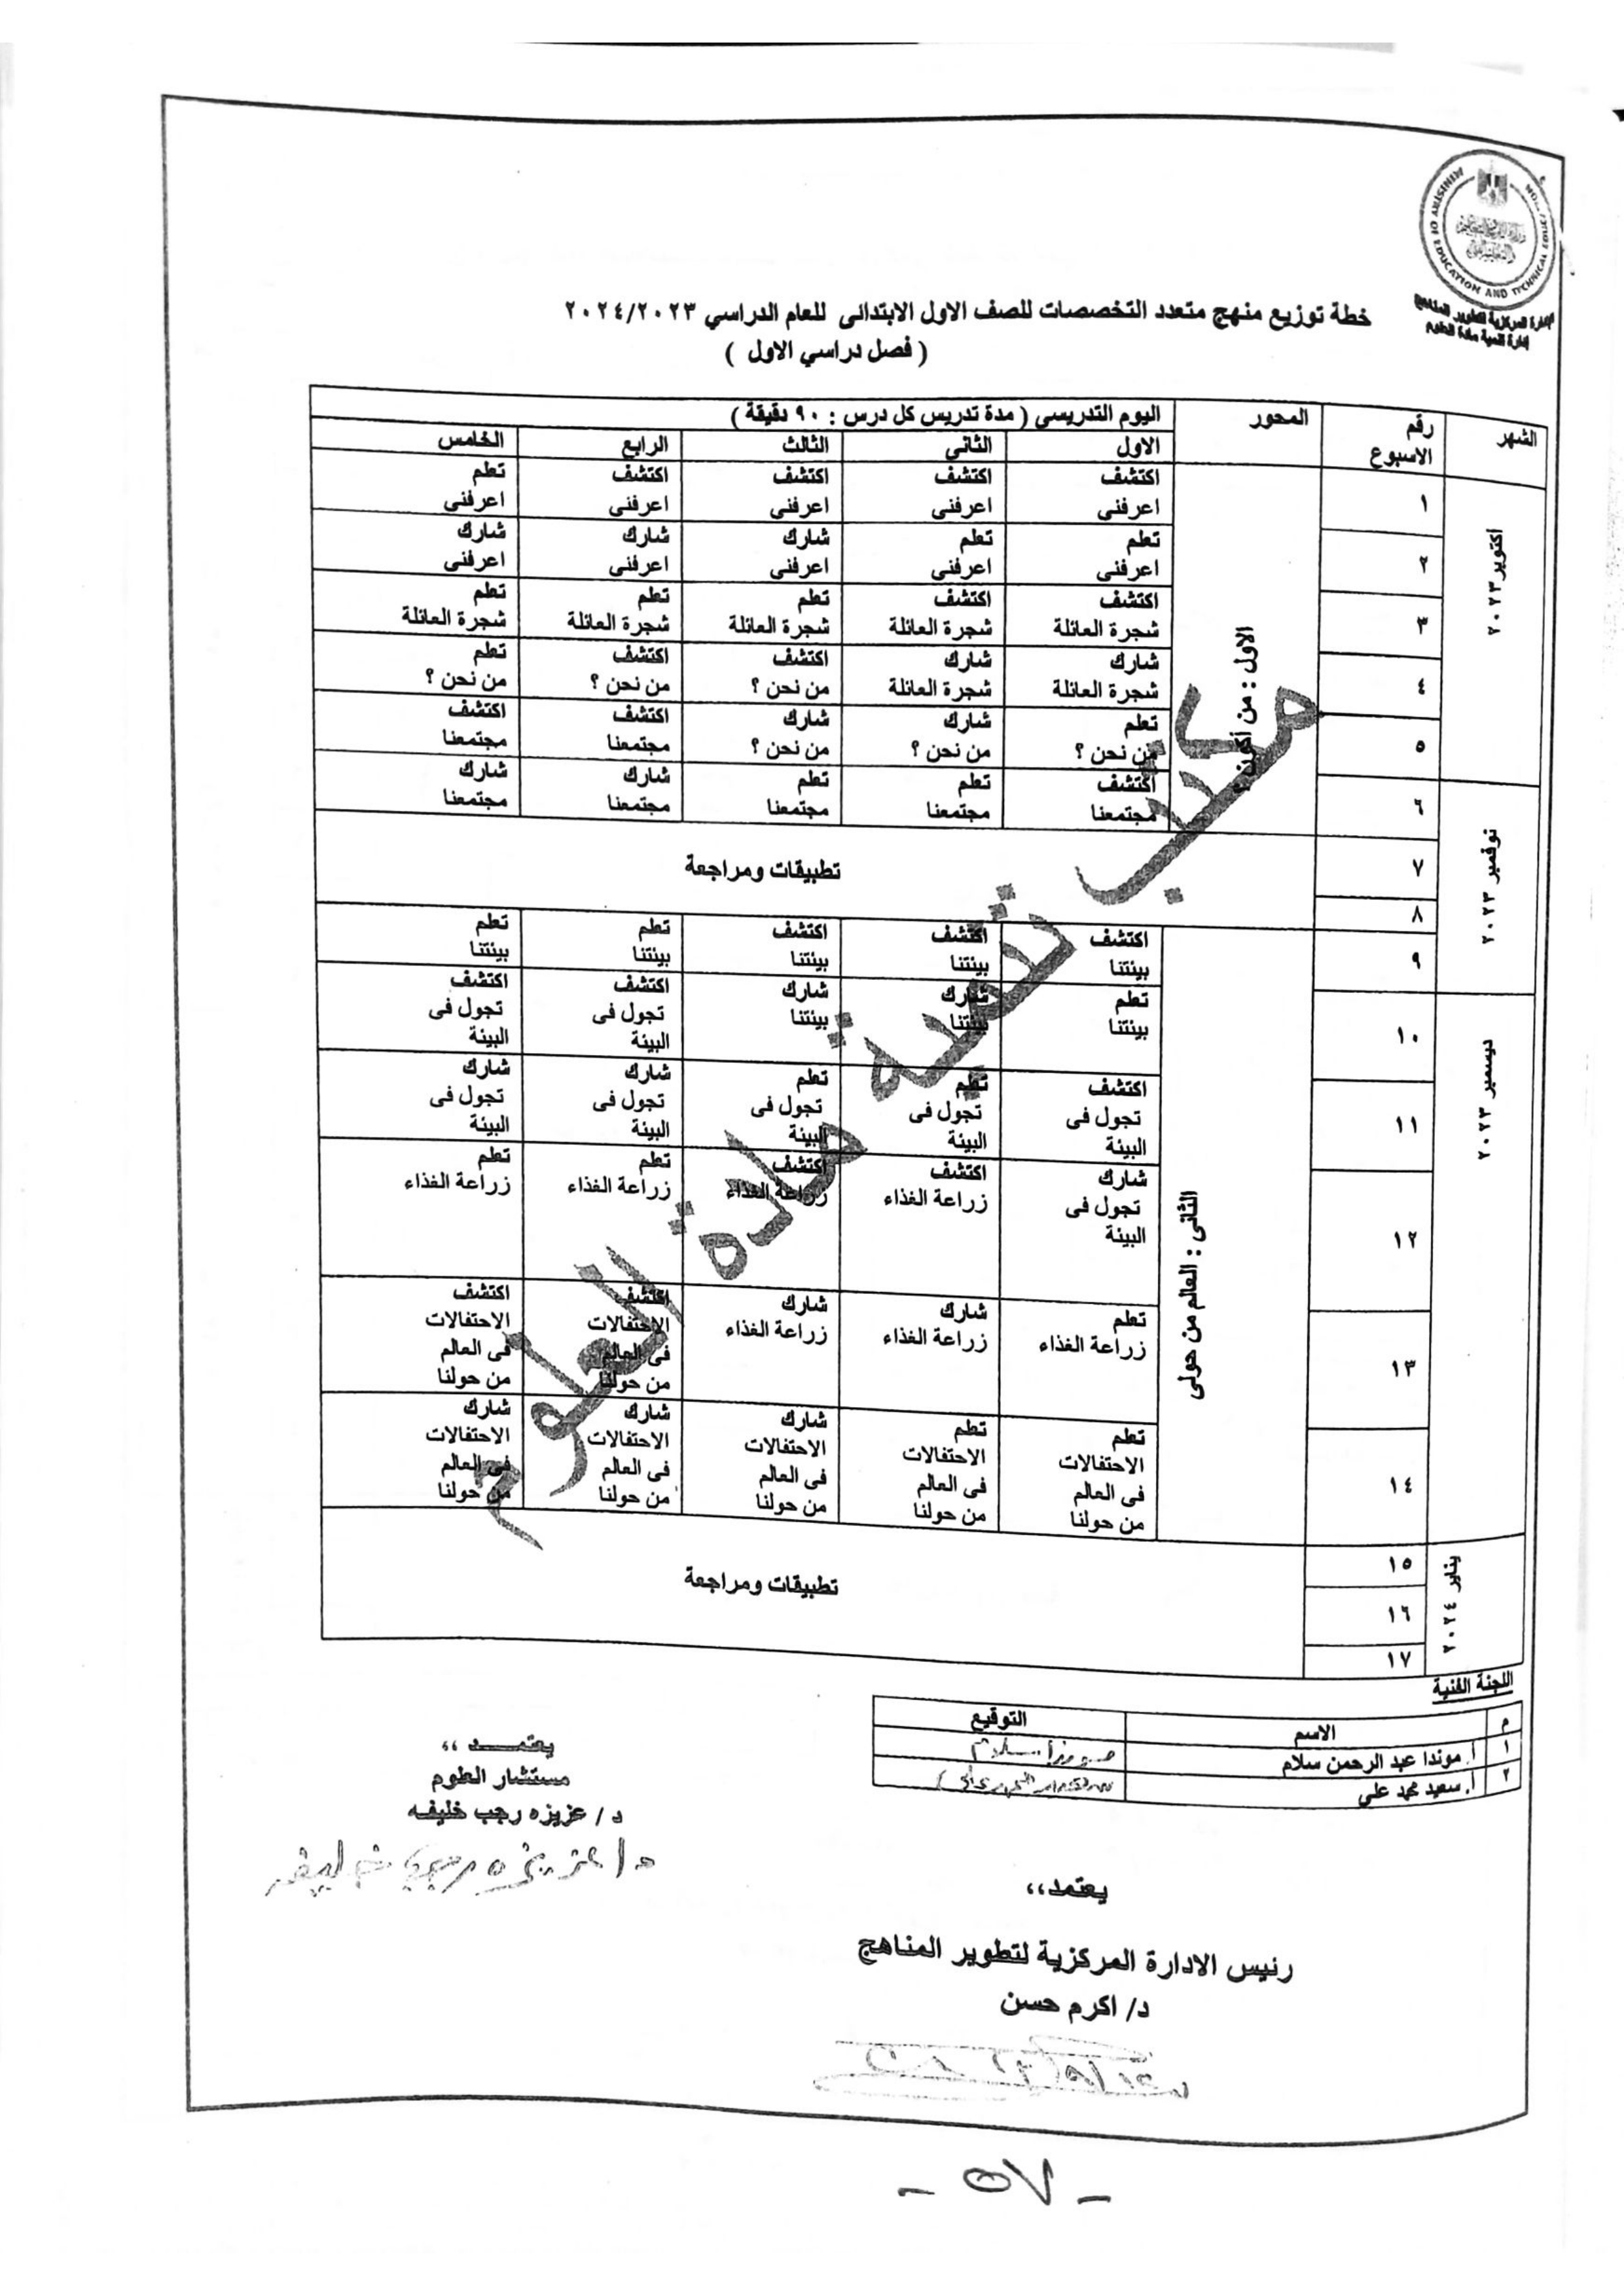 MINISTRY OF EDUCATION AND TECHNICAL EDUCATION
الإدارة المركزية لتطوير المناهج
إدارة تنمية مادة العلوم
خطة توزيع منهج متعدد التخصصات للصف الاول الابتدائى للعام الدراسي ٢٠٢٤/٢٠٢٣
( فصل دراسي الاول )
الشهر | رقم الاسبوع | المحور | اليوم التدريسى ( مدة تدريس كل درس : ٩٠ دقيقة )
الاول | الثانى | الثالث | الرابع | الخامس
أكتوبر ٢٠٢٣
الاول : من أكون ؟
١ | اكتشف اعرفنى | اكتشف اعرفنى | اكتشف اعرفنى | اكتشف اعرفنى | تعلم اعرفنى
٢ | تعلم اعرفنى | تعلم اعرفنى | شارك اعرفنى | شارك اعرفنى | شارك اعرفنى
٣ | اكتشف شجرة العائلة | اكتشف شجرة العائلة | تعلم شجرة العائلة | تعلم شجرة العائلة | تعلم شجرة العائلة
٤ | شارك شجرة العائلة | شارك شجرة العائلة | اكتشف من نحن ؟ | اكتشف من نحن ؟ | تعلم من نحن ؟
٥ | تعلم من نحن ؟ | شارك من نحن ؟ | شارك من نحن ؟ | اكتشف مجتمعنا | اكتشف مجتمعنا
نوفمبر ٢٠٢٣
٦ | اكتشف مجتمعنا | تعلم مجتمعنا | تعلم مجتمعنا | شارك مجتمعنا | شارك مجتمعنا
٧ | تطبيقات ومراجعة
٨
الثانى : العالم من حولى
٩ | اكتشف بيئتنا | اكتشف بيئتنا | اكتشف بيئتنا | تعلم بيئتنا | تعلم بيئتنا
ديسمبر ٢٠٢٣
١٠ | تعلم بيئتنا | شارك بيئتنا | شارك بيئتنا | اكتشف تجول فى البيئة | اكتشف تجول فى البيئة
١١ | اكتشف تجول فى البيئة | تعلم تجول فى البيئة | تعلم تجول فى البيئة | شارك تجول فى البيئة | شارك تجول فى البيئة
١٢ | شارك تجول فى البيئة | اكتشف زراعة الغذاء | اكتشف زراعة الغذاء | تعلم زراعة الغذاء | تعلم زراعة الغذاء
١٣ | تعلم زراعة الغذاء | شارك زراعة الغذاء | شارك زراعة الغذاء | اكتشف الاحتفالات فى العالم من حولنا | اكتشف الاحتفالات فى العالم من حولنا
١٤ | تعلم الاحتفالات فى العالم من حولنا | تعلم الاحتفالات فى العالم من حولنا | شارك الاحتفالات فى العالم من حولنا | شارك الاحتفالات فى العالم من حولنا | شارك الاحتفالات فى العالم من حولنا
يناير ٢٠٢٤
١٥
١٦ | تطبيقات ومراجعة
١٧
مكتب تنمية مادة العلوم
اللجنة الفنية
م | الاسم | التوقيع
١ | أ. موندا عبد الرحمن سلام
٢ | أ. سعيد محمد على
يعتمـــــد ،،
مستشار العلوم
د / عزيزه رجب خليفه
د/ عزيزه رجب خليفه
يعتمد،،
رئيس الادارة المركزية لتطوير المناهج
د/ اكرم حسن
- ٥٧ -